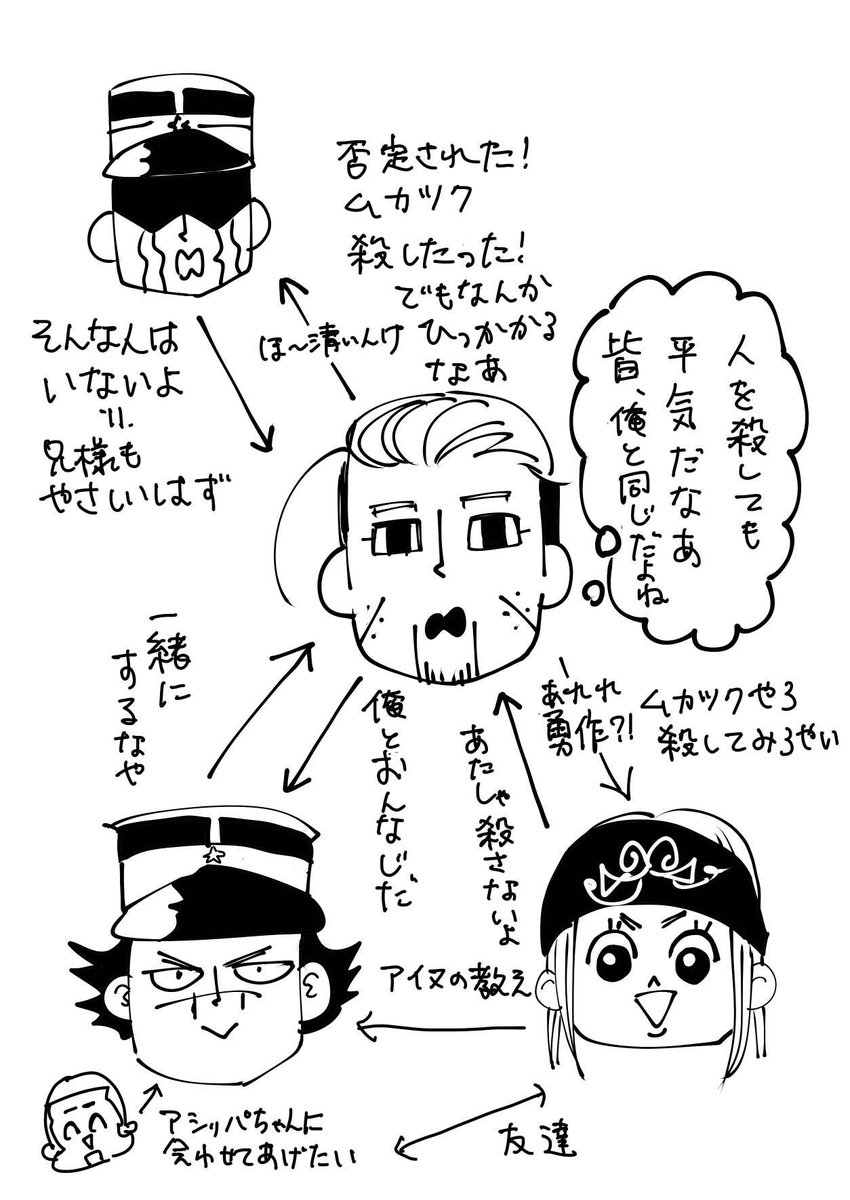 否定された!
ムカツク
殺したった!
でもなんか
ひっかかる
なぁ
ほ〜清いんけ
そんなんは
いないよ
兄様も
やさしいはず
人を殺しても
平気だなあ
皆、俺と同じだよね
一緒に
するなや
俺とおんなじだ
あたしゃ殺さないよ
あれれ
勇作?!
ムカツクやろ
殺してみろやい
アイヌの教え
アシㇼパちゃんに
会わせてあげたい
友達